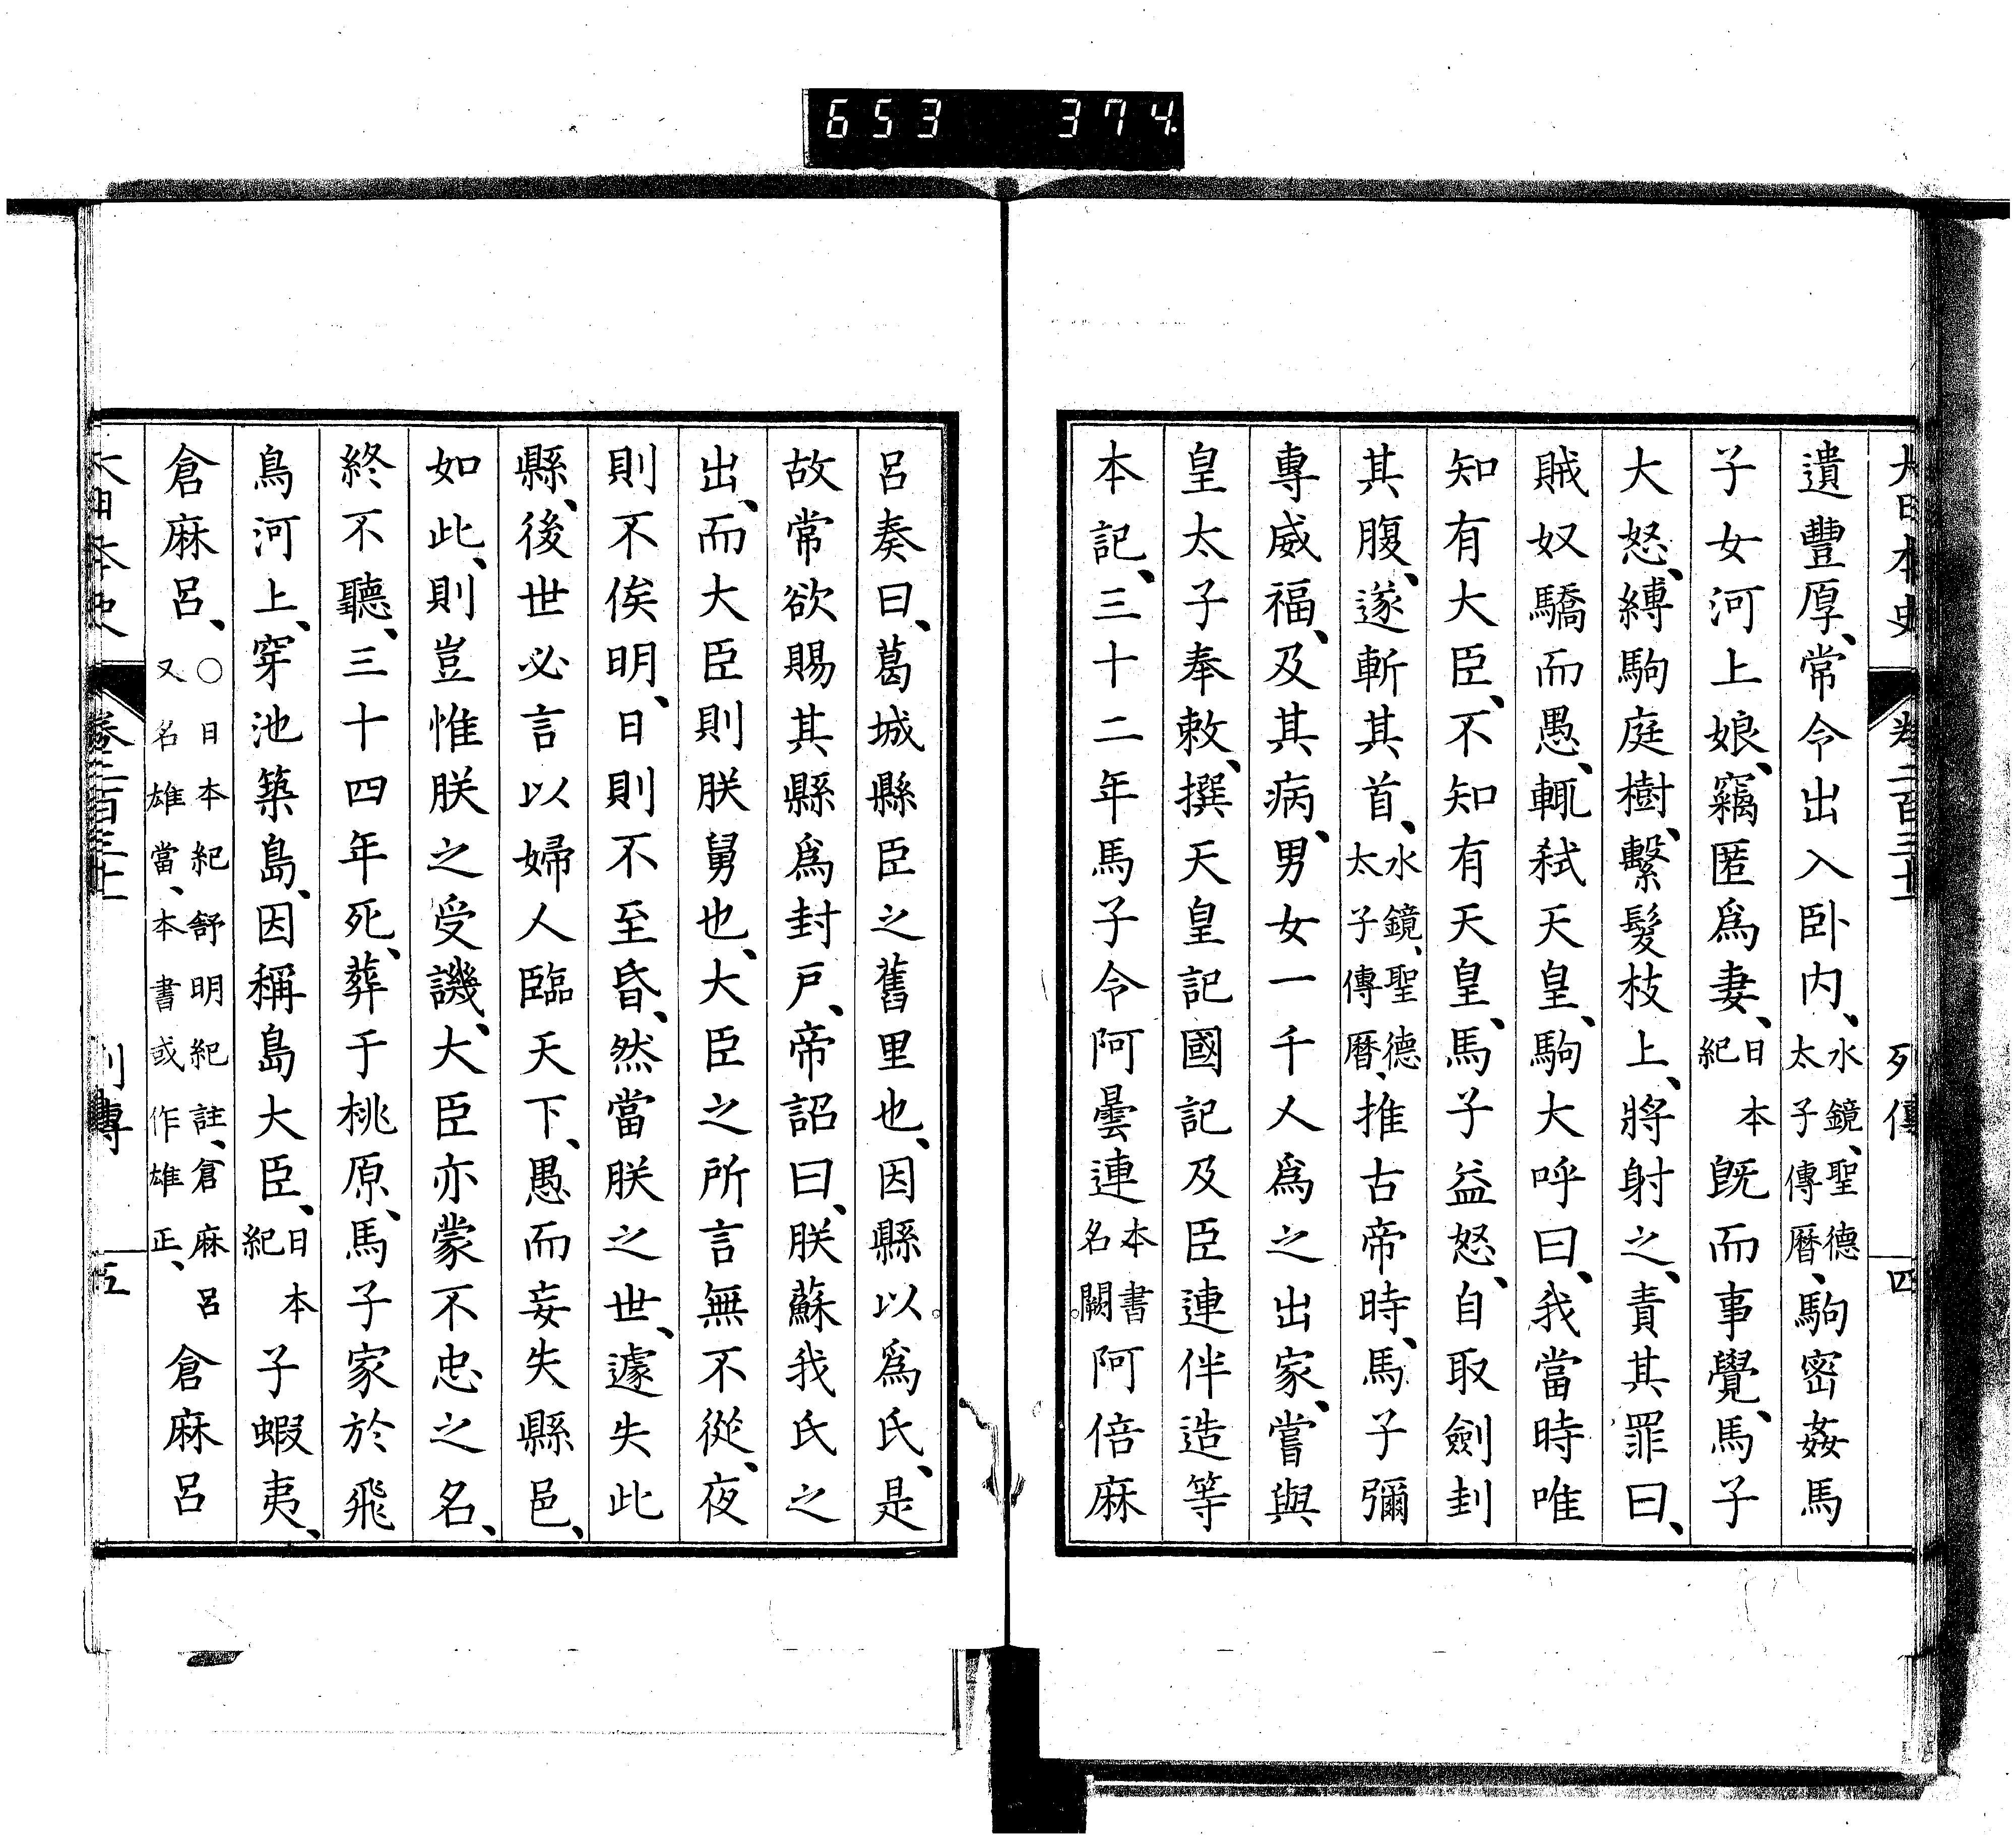 653 374
大日本史 卷二百三十一 列傳 四
遺豐厚、常令出入卧内、水鏡、聖德太子傳曆、駒密姦馬
子女河上娘、竊匿爲妻、日本紀既而事覺、馬子
大怒、縛駒庭樹、繫髮枝上、將射之、責其罪曰、
賊奴驕而愚、輒弑天皇、駒大呼曰、我當時唯
知有大臣、不知有天皇、馬子益怒、自取劍刲
其腹、遂斬其首、水鏡、聖德太子傳曆、推古帝時、馬子彌
專威福、及其病、男女一千人爲之出家、嘗與
皇太子奉敕、撰天皇記國記及臣連伴造等
本記、三十二年馬子令阿曇連本書名闕。阿倍麻
呂奏曰、葛城縣臣之舊里也、因縣以爲氏、是
故常欲賜其縣爲封戸、帝詔曰、朕蘇我氏之
出、而大臣則朕舅也、大臣之所言無不從、夜
則不俟明、日則不至昏、然當朕之世、遽失此
縣、後世必言以婦人臨天下、愚而妄失縣邑、
如此、則豈惟朕之受譏、大臣亦蒙不忠之名、
終不聽、三十四年死、葬于桃原、馬子家於飛
鳥河上、穿池築島、因稱島大臣、日本紀子蝦夷、
倉麻呂、〇日本紀舒明紀註、倉麻呂又名雄當、本書或作雄正、倉麻呂
大日本史 卷二百三十一 列傳 五